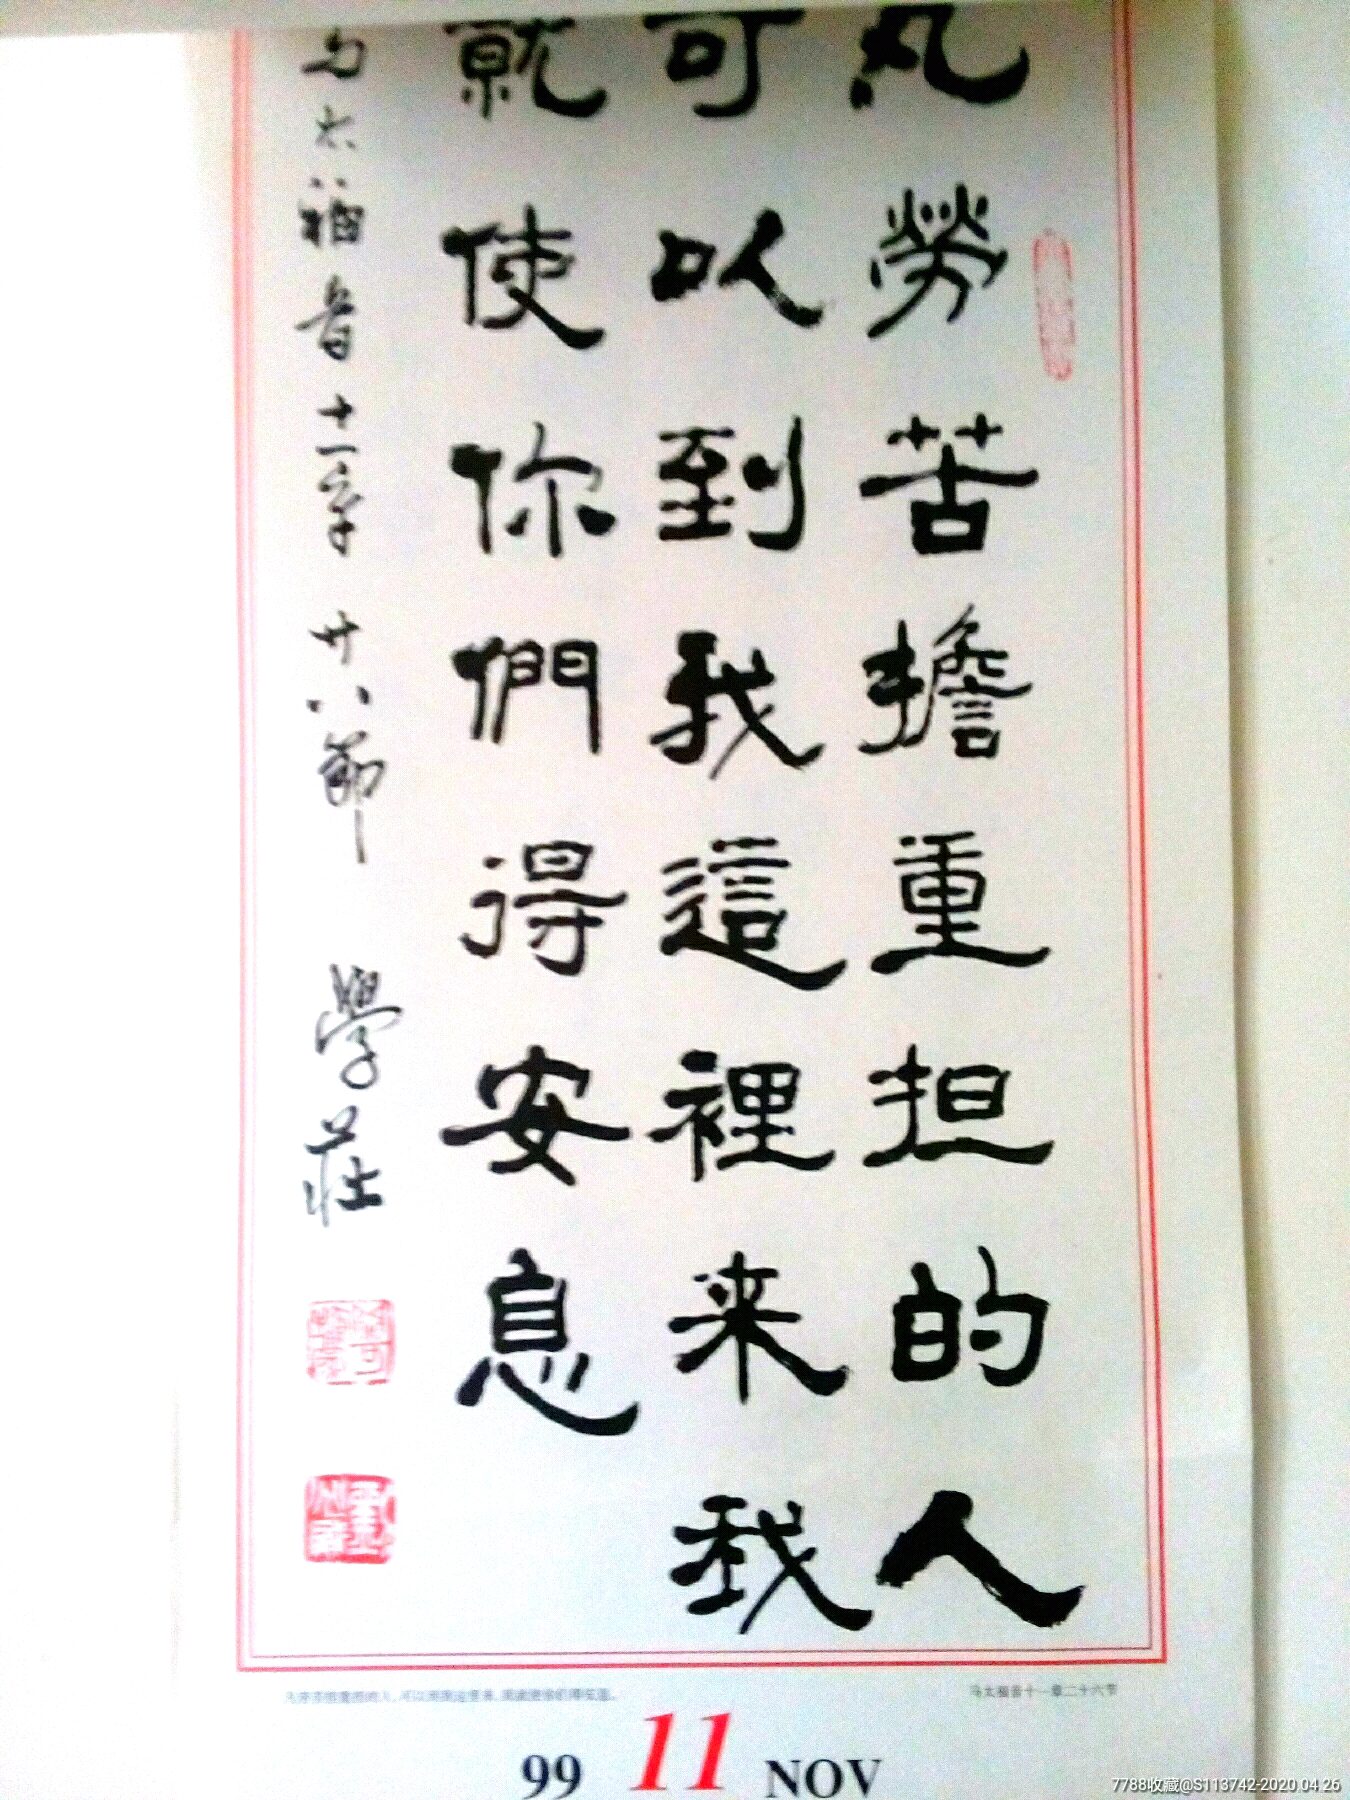 凡勞苦擔重担的人
可以到我這裡来我
就使你們得安息
马太福音十一章廿八節 學莊
凡劳苦担重担的人,可以到我这里来,我就使你们得安息。
马太福音十一章二十六节
99 11 NOV
7788收藏@S113742-2020.04.26